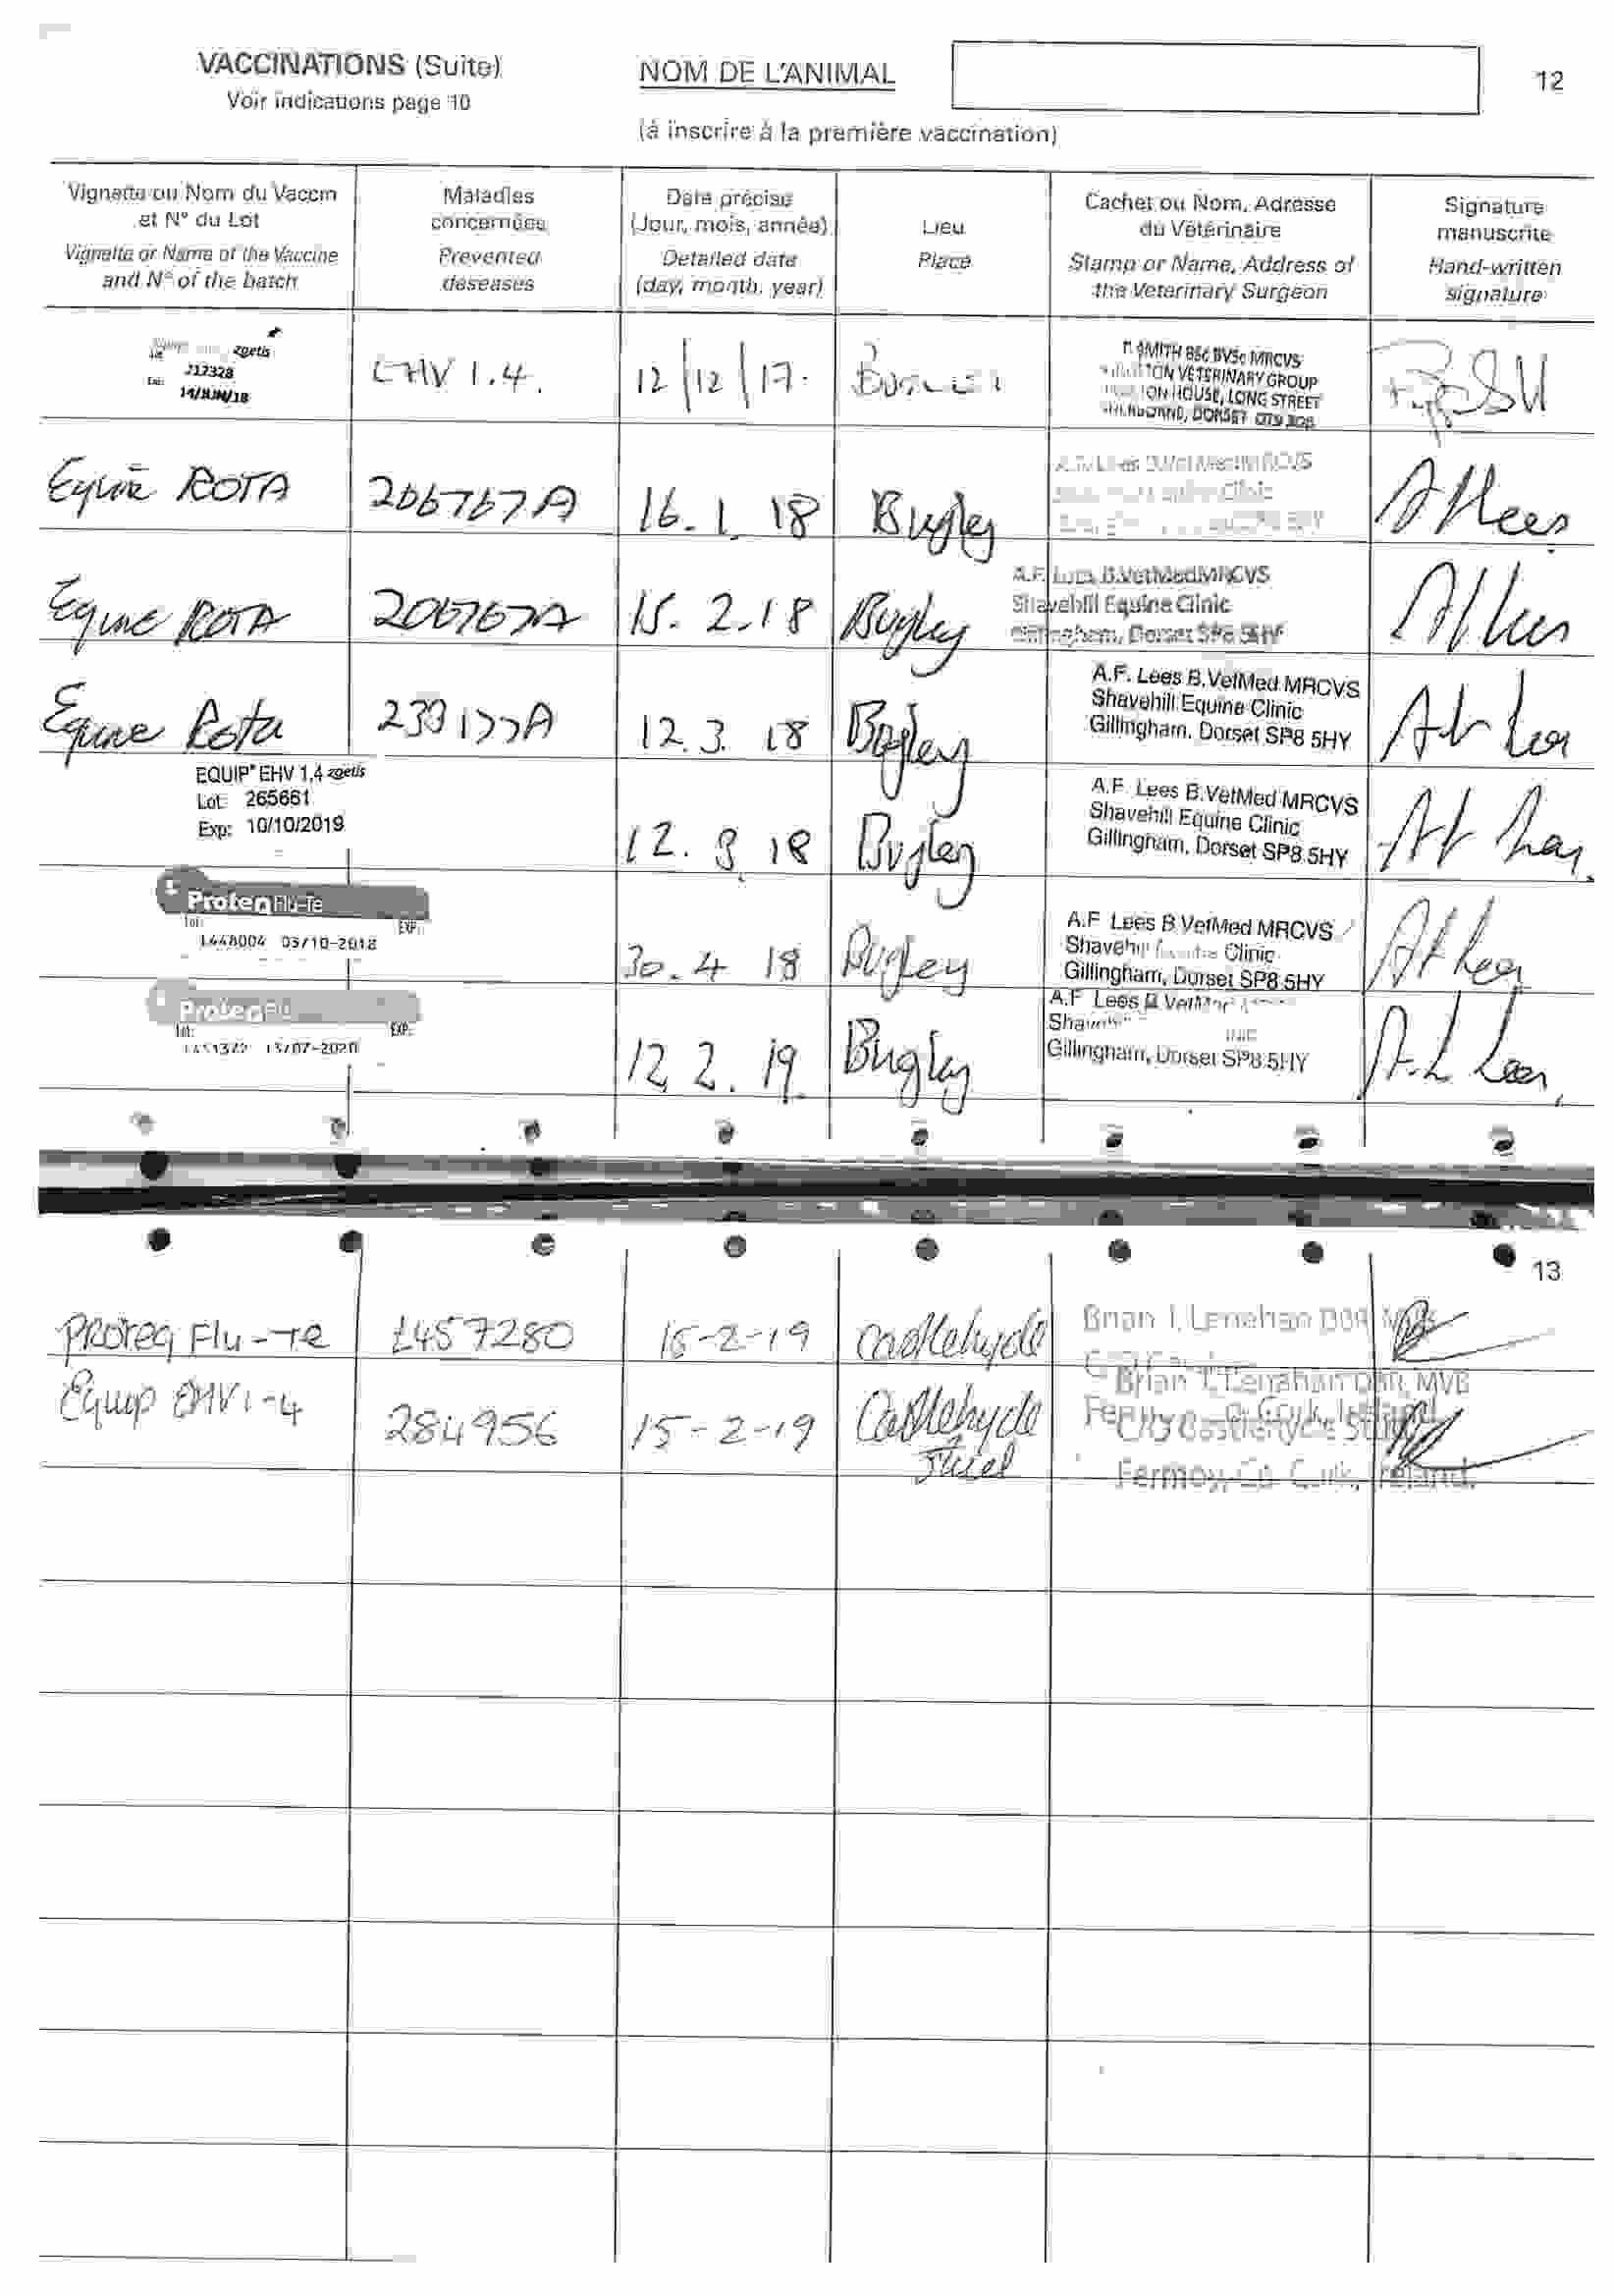 VACCINATIONS (Suite)
Voir indications page 10
NOM DE L'ANIMAL
12
(à inscrire à la première vaccination)
Vignette ou Nom du Vaccin
et N° du Lot
Vignette or Name of the Vaccine
and N° of the batch
Maladies
concernées
Prevented
deseases
Date précise
(Jour, mois, année)
Detailed date
(day, month, year)
Lieu
Place
Cachet ou Nom, Adresse
du Vétérinaire
Stamp or Name, Address of
the Veterinary Surgeon
Signature
manuscrite
Hand-written
signature
zoetis
212328
14/JUN/18
EHV 1.4.
12/12/17.
SMITH BSc BVSc MRCVS
VETERINARY GROUP
HOUSE, LONG STREET
DORSET
Equine ROTA
206767A
16.1.18
Bugley
A.F. Lees B.VetMed MRCVS
Clinic
A F Lees
Equine ROTA
206767A
15.2.18
Bugley
A.F. Lees B.VetMed MRCVS
Shavehill Equine Clinic
Gillingham, Dorset SP8 5HY
A F Lees
Equine Rota
233177A
12.3.18
Bugley
A.F. Lees B.VetMed MRCVS
Shavehill Equine Clinic
Gillingham, Dorset SP8 5HY
A F Lees
EQUIP® EHV 1,4 zoetis
Lot: 265661
Exp: 10/10/2019
12.3.18
Bugley
A.F. Lees B.VetMed MRCVS
Shavehill Equine Clinic
Gillingham, Dorset SP8 5HY
A F Lees
ProteqFlu-Te
Lot: EXP:
L448004 03/10-2018
30.4 18
Bugley
A.F. Lees B.VetMed MRCVS
Shavehill Equine Clinic
Gillingham, Dorset SP8 5HY
A F Lees
ProteqFlu
Lot: EXP:
L451372 13/07-2020
12.2.19.
Bugley
A.F. Lees B VetMed
Gillingham, Dorset SP8 5HY
A.F. Lees
13
Proteq Flu-Te
L457280
15-2-19
Castlehyde
Brian J. Lenehan DBR, MVB
Equip EHV 1-4
284956
15-2-19
Castlehyde
Stud
Brian J. Lenahan DBR, MVB
C/O Castlehyde Stud
Fermoy, Co. Cork, Ireland.